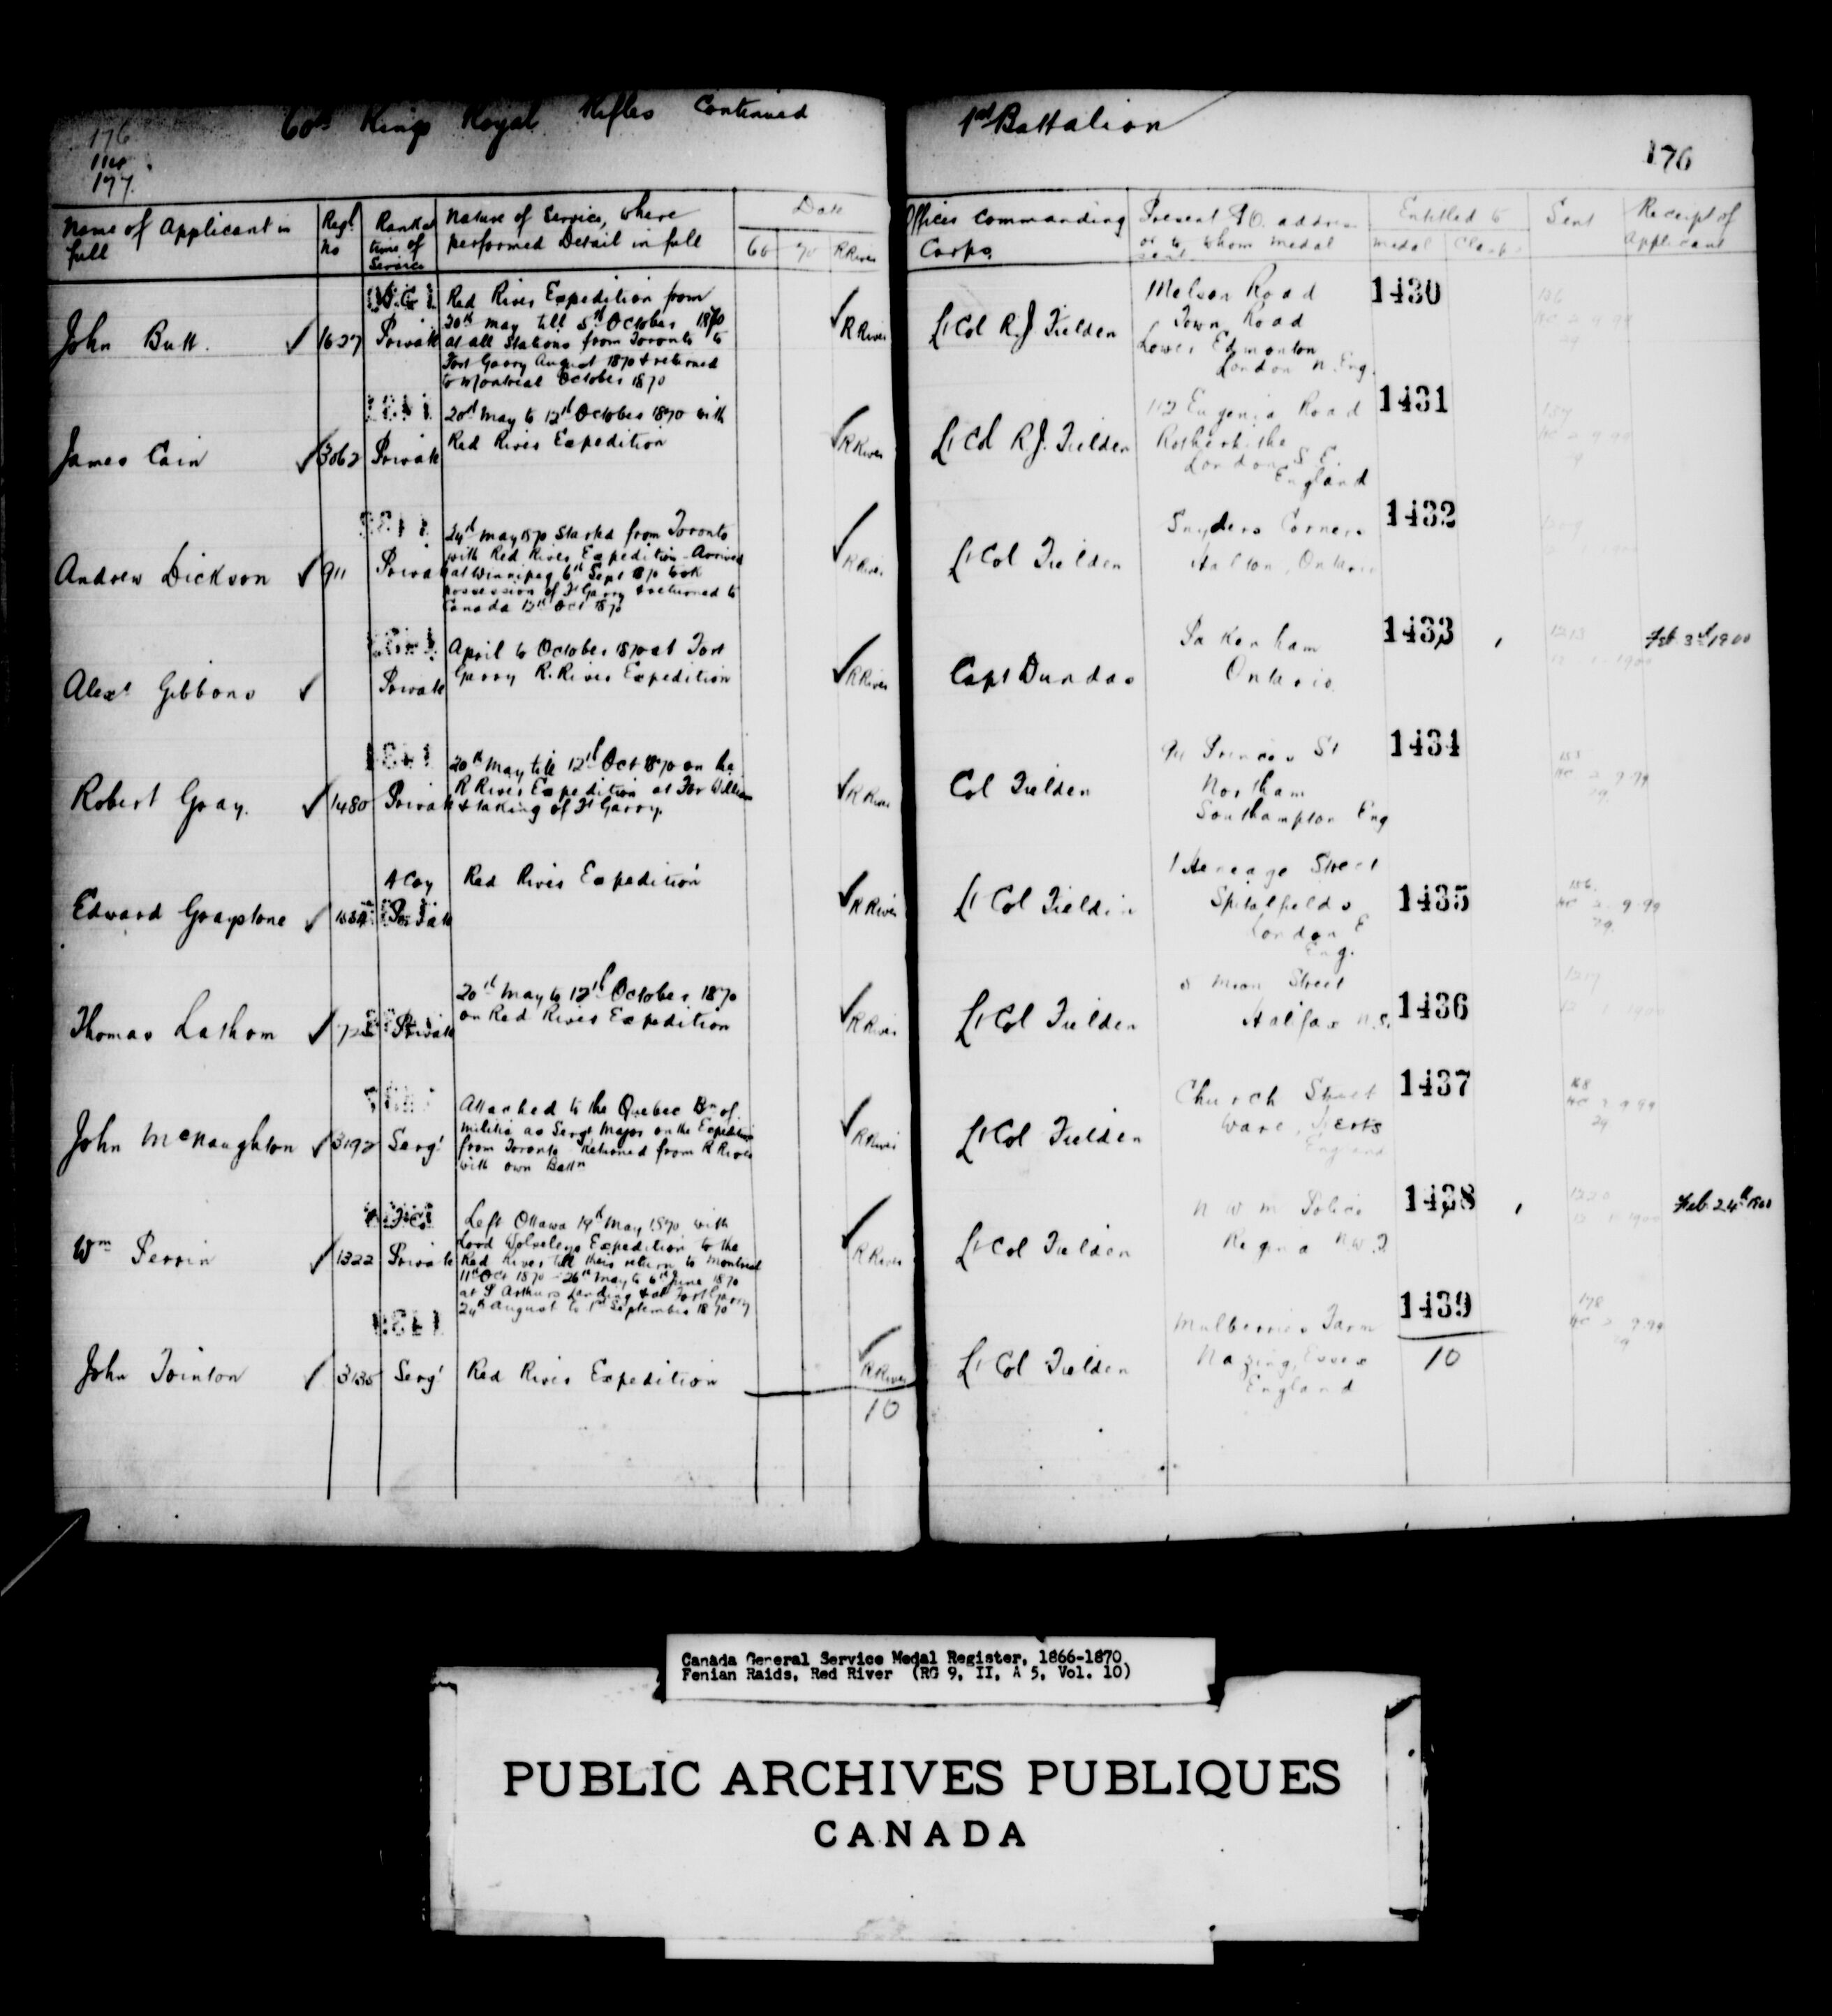 176
177
60th Kings Royal Rifles Continued
1st Battalion
176
Name of Applicant in full
Regt No
Rank at time of Service
Nature of Service, where performed Detail in full
Date
66
70
R River
Officer Commanding Corps
Present P.O. address or to whom medal sent
Entitled to
Medal
Clasp
Sent
Receipt of Applicant
John Butt. ✓ 1627 Private
Red River Expedition from
20th May till 5th October 1870
at all Stations from Toronto to
Fort Garry August 1870 & returned
to Montreal October 1870
✓ R River
Lt Col R. J. Fielden
Town Road
Lower Edmonton
London N. Eng.
1430
James Cain ✓ 3062 Private
20th May to 12th October 1870 with
Red River Expedition
✓ R River
Lt Col R J. Fielden
112 Eugenia Road
Rotherhithe
London S.E.
England
1431
Andrew Dickson ✓ 911 Private
24th May 1870 Started from Toronto
with Red River Expedition - Arrived
at Winnipeg 6th Sept 1870 took
possession of Ft Garry & returned to
Canada 12th Oct 1870
✓ R River
Lt Col Fielden
Snyders Corners
Halton, Ontario
1432
Alexr Gibbons ✓ Private
April to October 1870 at Fort
Garry R. River Expedition
✓ R River
Capt Dundas
Pakenham
Ontario
1433
Feb 3rd 1900
Robert Gray. ✓ 1480 Private
20th May till 12th Oct 1870 on he
R River Expedition at For William
& taking of Ft Garry.
✓ R River
Col Fielden
Northam
Southampton Eng
1434
Edward Graystone ✓
A Coy
Private
Red River Expedition
✓ R River
Lt Col Fielden
Street
Spitalfields
London E
Eng.
1435
Thomas Latham ✓ Private
20th May to 12th October 1870
on Red River Expedition
✓ R River
Lt Col Fielden
Street
Halifax N.S.
1436
John McNaughton ✓ 3192 Sergt
Attached to the Quebec Bn of
Militia as Sergt Major on the Expedition
from Toronto Retured from R River
with own Battn
✓ R River
Lt Col Fielden
Church Street
Ware, Herts
England
1437
Wm Perrin ✓ 1322 Private
Left Ottawa 19th May 1870 with
Lord Wolseleys Expedition to the
Red River till their return to Montreal
11th Oct 1870 - 26th May to 6th June 1870
at P Arthurs Landing & at Fort Garry
24th August to 1st September 1870
✓ R River
Lt Col Fielden
N W M Police
Regina N.W.T
1438
Feb 24th 1900
John Tointon ✓ 3135 Sergt
Red River Expedition
✓ R River
Lt Col Fielden
Mulberries Farm
Nazing, Essex
England
1439
10
10
Canada General Service Medal Register, 1866-1870
Fenian Raids, Red River (RG 9, II, A 5, Vol. 10)
PUBLIC ARCHIVES PUBLIQUES
CANADA